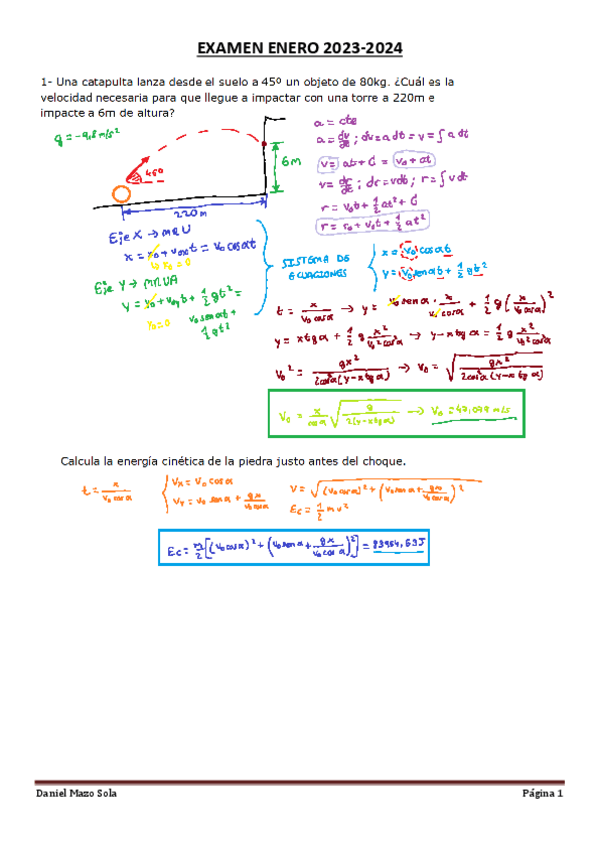 EXAMEN ENERO 2023-2024
1- Una catapulta lanza desde el suelo a 45º un objeto de 80kg. ¿Cuál es la
velocidad necesaria para que llegue a impactar con una torre a 220m e
impacte a 6m de altura?
g = -9,8 m/s²
45º
6m
220m
a = cte
a = dv/dt ; dv = a dt → v = ∫ a dt
v = at + C = v₀ + at
v = dr/dt ; dr = v dt ; r = ∫ v dt
r = v₀t + 1/2 at² + C
r = r₀ + v₀t + 1/2 at²
Eje X → MRU
x = x₀ + v₀ₓt = v₀ cosα t
x₀ = 0
Eje Y → MRUA
y = y₀ + v₀yt + 1/2 gt² =
y₀ = 0
v₀ senα t + 1/2 gt²
SISTEMA DE
ECUACIONES
x = v₀ cosα t
y = v₀ senα t + 1/2 gt²
t = x/(v₀ cosα) → y = v₀ senα · x/(v₀ cosα) + 1/2 g (x/(v₀ cosα))²
y = x tgα + 1/2 g x²/(v₀² cos²α) → y - x tgα = 1/2 g x²/(v₀² cos²α)
v₀² = gx²/(2cos²α (y - x tgα)) → v₀ = √(gx²/(2cos²α (y - x tgα)))
v₀ = x/cosα √(g/(2(y - x tgα))) → v₀ = 47,077 m/s
Calcula la energía cinética de la piedra justo antes del choque.
t = x/(v₀ cosα)
vₓ = v₀ cosα
vy = v₀ senα + gx/(v₀ cosα)
v = √((v₀ cosα)² + (v₀ senα + gx/(v₀ cosα))²)
Ec = 1/2 m v²
Ec = m/2 [(v₀ cosα)² + (v₀ senα + gx/(v₀ cosα))²] = 83954,69J
Daniel Mazo Sola
Página 1